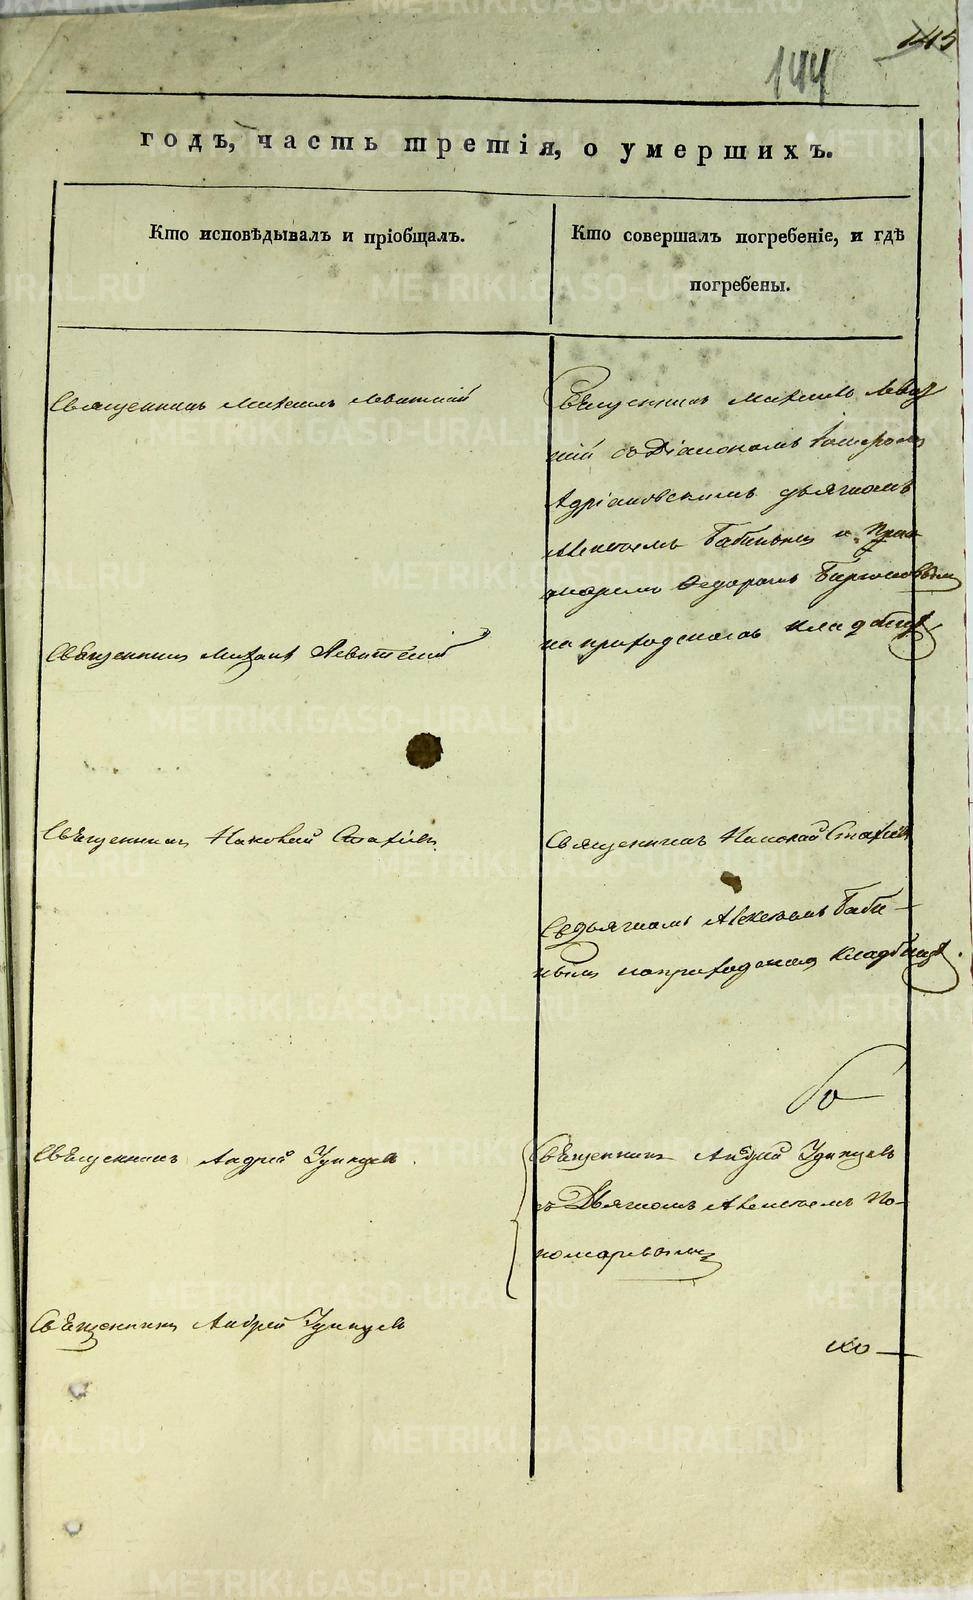 145
144
годъ, часть третія, о умершихъ.
Кто исповѣдывалъ и пріобщалъ.
Кто совершалъ погребеніе, и гдѣ
погребены.
Священникъ Михаилъ Левитскій
Священникъ Михаилъ Левит
скій съ Діакономъ
Адріановскимъ дьячкомъ
Алексѣемъ Бабинымъ и Поно
маремъ Ѳедоромъ
на приходскомъ кладбищѣ
Священникъ Михаилъ Левитскій
Священникъ Николай Стахіевъ
Священникъ Николай Стахіевъ
Съ дьячкомъ Алексѣемъ Баби
нымъ на приходскомъ кладбищѣ.
Священникъ Андрей
Священникъ Андрей
съ Дьячкомъ Алексѣемъ По-
номаревымъ
Священникъ Андрей
METRIKI.GASO-URAL.RU